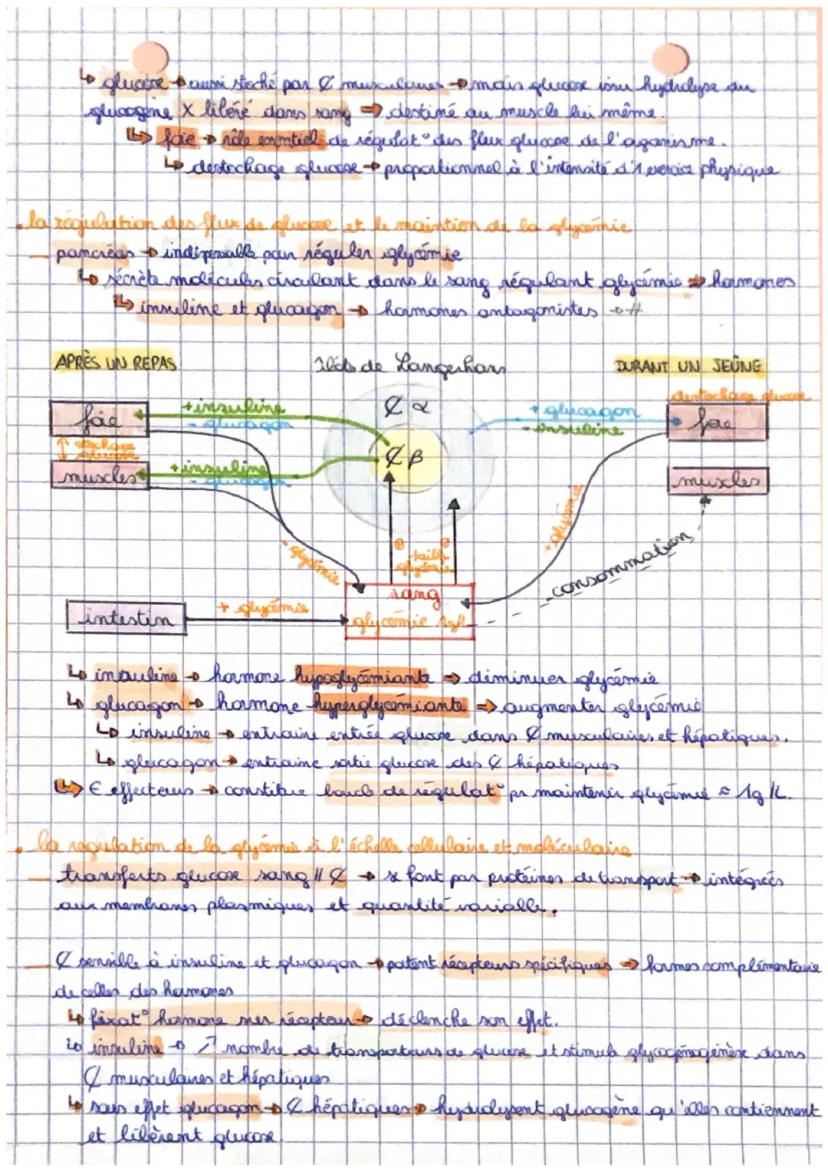 ↳ glucose → aussi stocké par ₵ musculaires → mais glucose issu hydrolyse du
glucogène X libéré dans sang ⇒ destiné au muscle lui même.
↳ foie → rôle essentiel de régulat° des flux glucose de l'organisme.
↳ destockage glucose → proportionnel à l'intensité d'1 exercice physique
• la régulation des flux de glucose et le maintien de la glycémie
— pancréas → indispensable pour réguler glycémie
↳ sécrète molécules circulant dans le sang régulant glycémie ⇒ hormones
↳ insuline et glucagon → hormones antagonistes → #
APRÈS UN REPAS
Ilots de Langerhans
DURANT UN JEÛNE
destockage glucose
foie
+ insuline
- glucagon
₵ α
+ glucagon
- insuline
foie
↑ stockage
↓ glucose
muscles
+ insuline
- glucagon
₵ β
muscles
- glycémie
faible
glycémie
+ glycémie
consommation
intestin
+ glycémie
sang
glycémie 1g/L
↳ insuline → hormone hypoglycémiante ⇒ diminuer glycémie
↳ glucagon → hormone hyperglycémiante ⇒ augmenter glycémie
↳ insuline → entraine entrée glucose dans ₵ musculaires et hépatiques.
↳ glucagon → entraine sortie glucose des ₵ hépatiques
↳ € effecteurs → constitue boucle de régulat° pr maintenir glycémie ≈ 1g/L.
• la régulation de la glycémie à l'échelle cellulaire et moléculaire
— transferts glucose sang // ₵ → se font par protéines de transport → intégrées
aux membranes plasmiques et quantité variable.
— ₵ sensible à insuline et glucagon → portent récepteurs spécifiques ⇒ formes complémentaire
de celles des hormones
↳ fixat° hormone sur récepteur → déclenche son effet.
↳ insuline → ↗ nombre de transporteurs de glucose et stimule glycogénogénèse dans
₵ musculaires et hépatiques
↳ sous effet glucagon → ₵ hépatiques → hydrolysent glucogène qu'elles contiennent
et libèrent glucose.